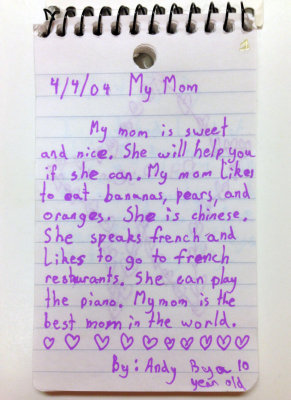 4/4/04 My Mom
My mom is sweet
and nice. She will help you
if she can. My mom likes
to eat bananas, pears, and
oranges. She is chinese.
She speaks french and
Likes to go to french
resturants. She can play
the piano. My mom is the
best mom in the world.
♡ ♡ ♡ ♡ ♡ ♡ ♡ ♡ ♡ ♡ ♡
By: Andy By a 10
year old